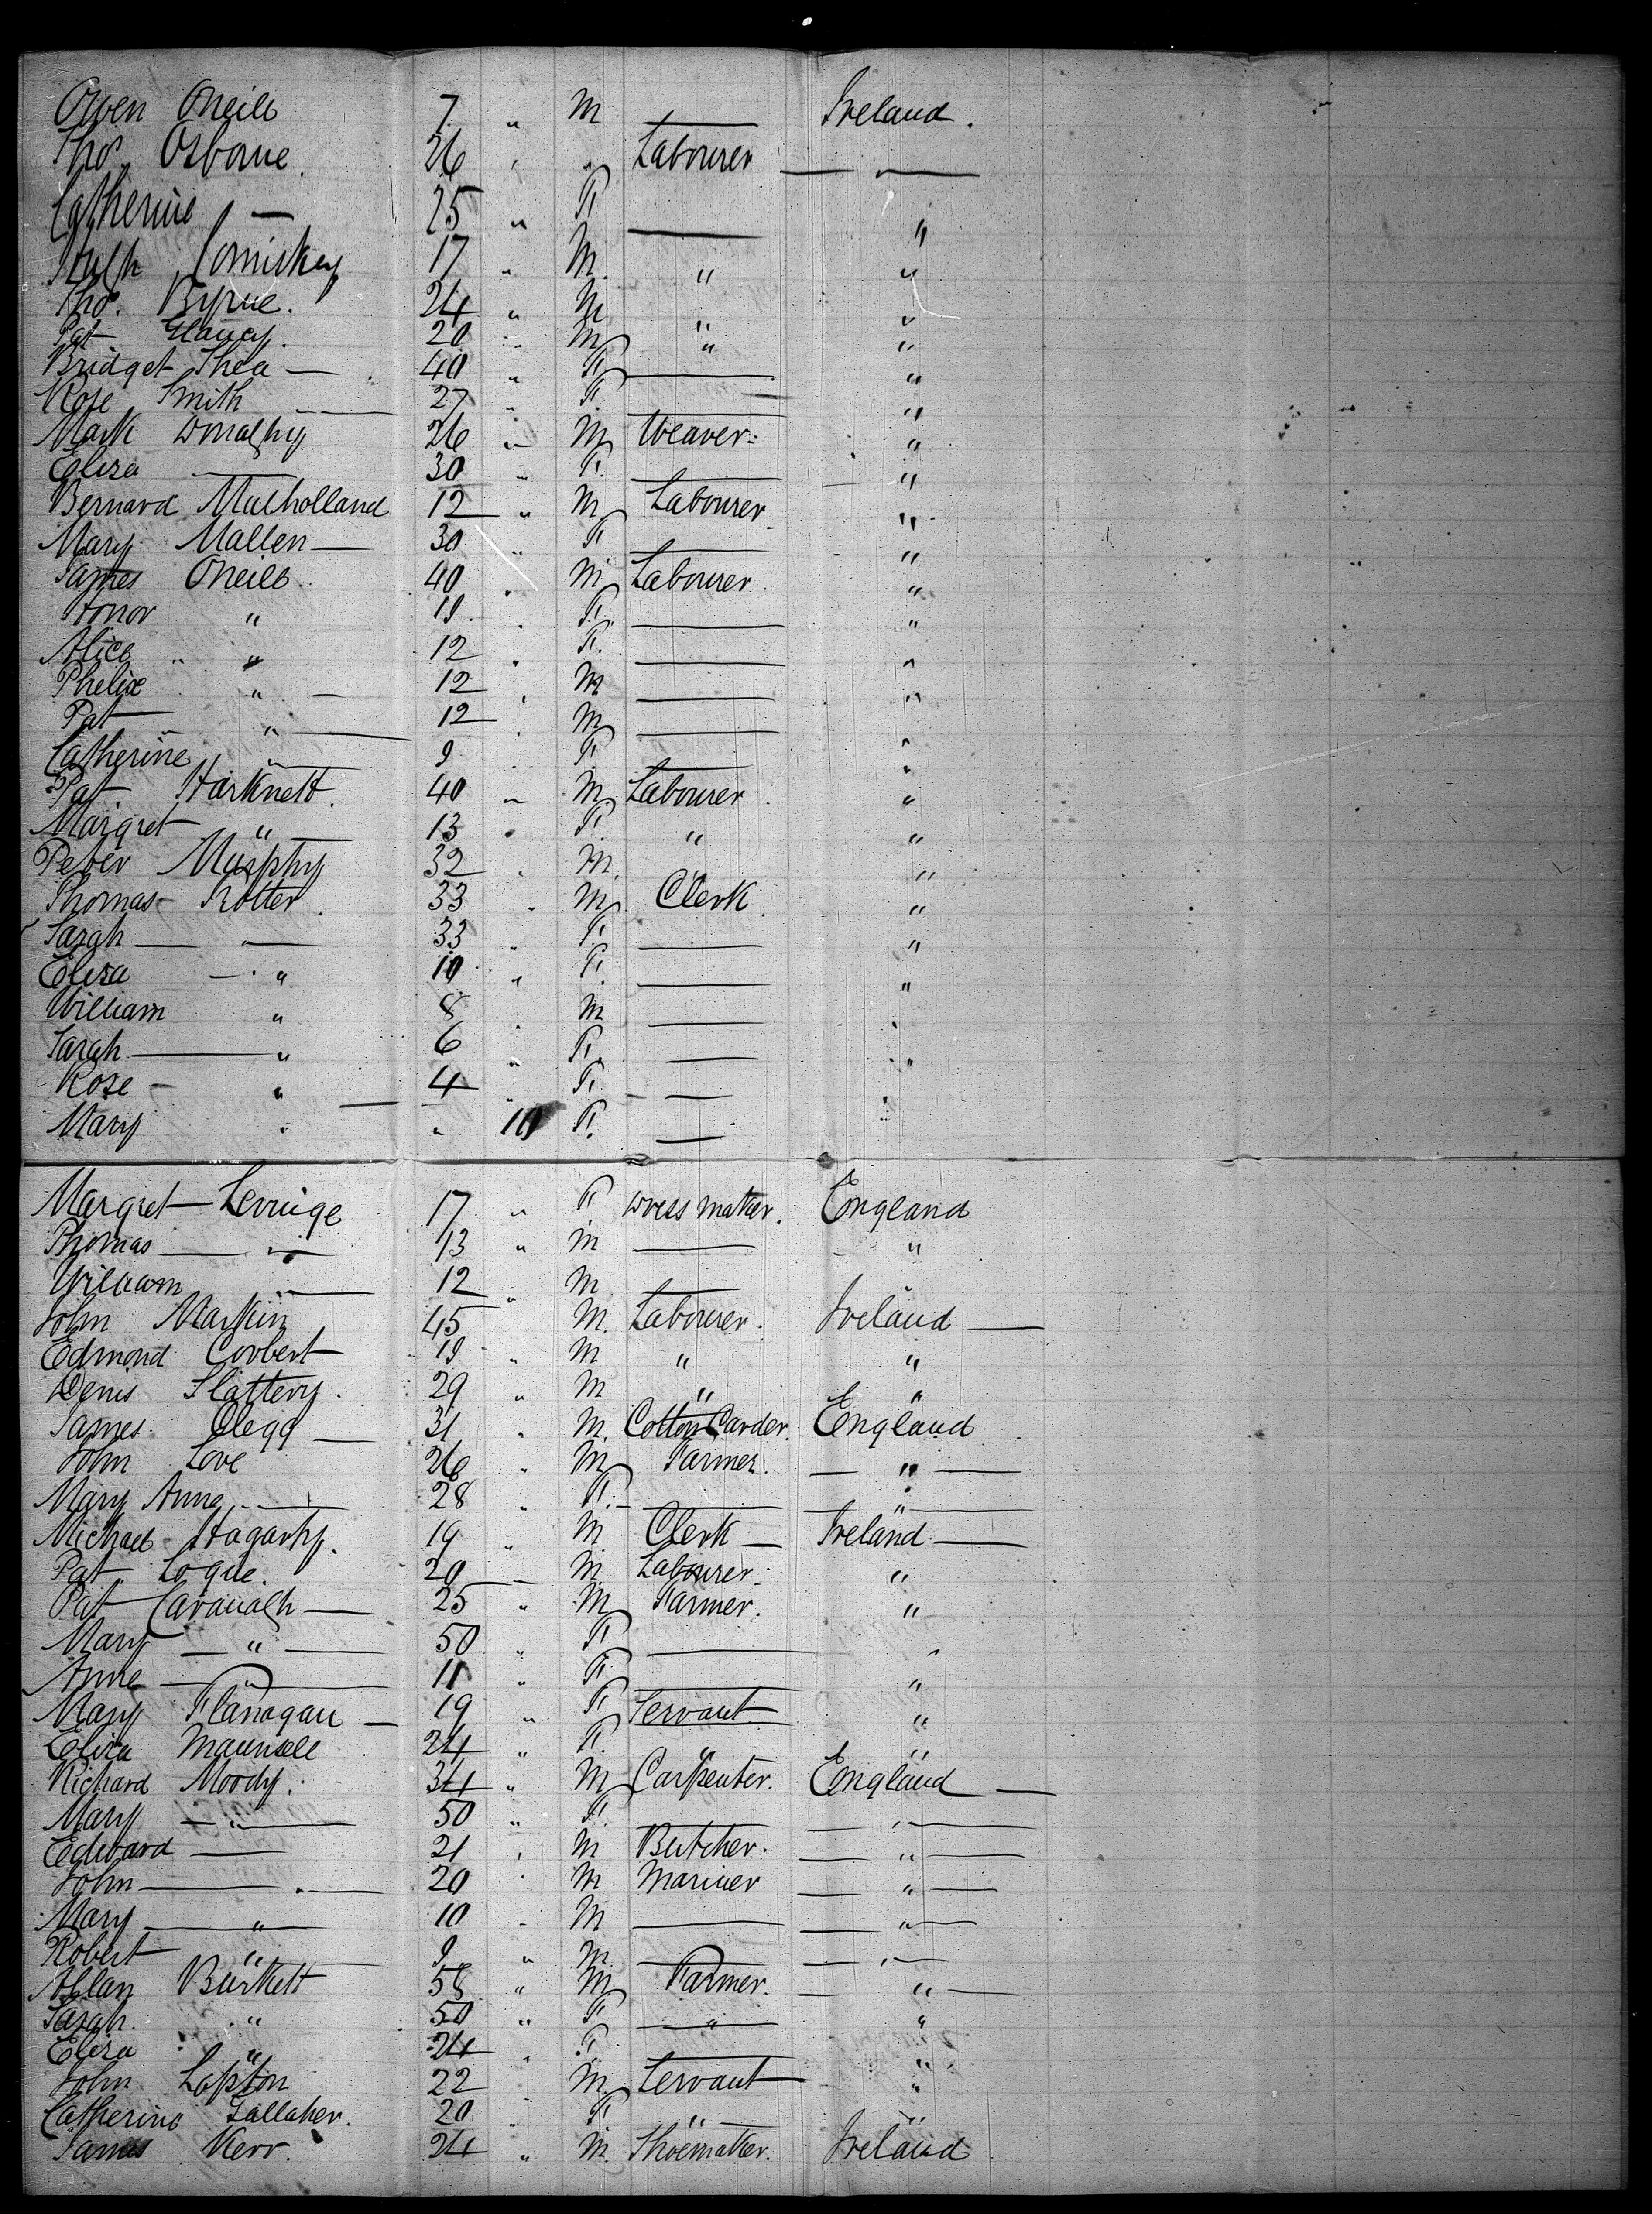 Owen Oneill 7 " M — Ireland.
Thos. Osborne 26 " " Labourer — " —
Catherine — 25 " F — "
Hugh Comiskey 17 " M. " "
Thos. Byrne. 24 " M " "
Pat 20 " M " "
Bridget Shea — 40 " F — "
Rose Smith — 27 " F — "
Mark Donalghy 26 " M Weaver "
Eliza — 30 " F. — "
Bernard Mulholland 12 " M Labourer "
Mary Mallen — 30 " F — "
James Oneill 40 " M Labourer "
Honor " 19 " F. — "
Alice " 12 " F. — "
Phelix " — 12 " M — "
Pat " — 12 " M — "
Catherine " 9 " F — "
Pat Harknett. 40 " M Labourer "
Margret " 13 " F. " "
Peter Murphy 32 " M. "
Thomas Rotter 33 " M Clerk "
Sarah — — 33 " F. — "
Eliza — " 10 " F. — "
William " 8 " M — "
Sarah — " 6 " F. — "
Rose — " 4 " F. — "
Mary " " 10 F. — "
Margret Levinge 17 " F Dress maker. England
Thomas — " — 13 " M — "
William — 12 " M —
John Markin 45 M. Labourer. Ireland —
Edmond Corbert 19 " M " "
Denis Slattery. 29 " M " "
James Clegg — 31 " M. Cotton Carder. England
John Love 26 " M Farmer. — " —
Mary Anne — 28 " F. — — " —
Michael Hagarty. 19 " M Clerk — Ireland —
Pat Logue. 20 — M Labourer "
Pat Cavanagh — 25 " M Farmer. "
Mary — " — 50 " F — "
Anne — " — 11 " F. — "
Mary Flanagan — 19 " F Servant "
Eliza Maunsell 24 " F. " "
Richard Moody. 34 " M Carpenter. England —
Mary — " — 50 " F. — " —
Edward — 21 " M Butcher. — " —
John — " — 20 " M. Mariner — " —
Mary — " — 10 " M — — " —
Robert " — 9 " M — — " —
Allan Burkett 58 " M Farmer. — " —
Sarah. " 50 " F — " — "
Eliza " 24 " F. — "
John Lapton 22 " M Servant "
Catherine Gallaher. 20 " F " — "
James Kerr. 24 " M. Shoemaker. Ireland